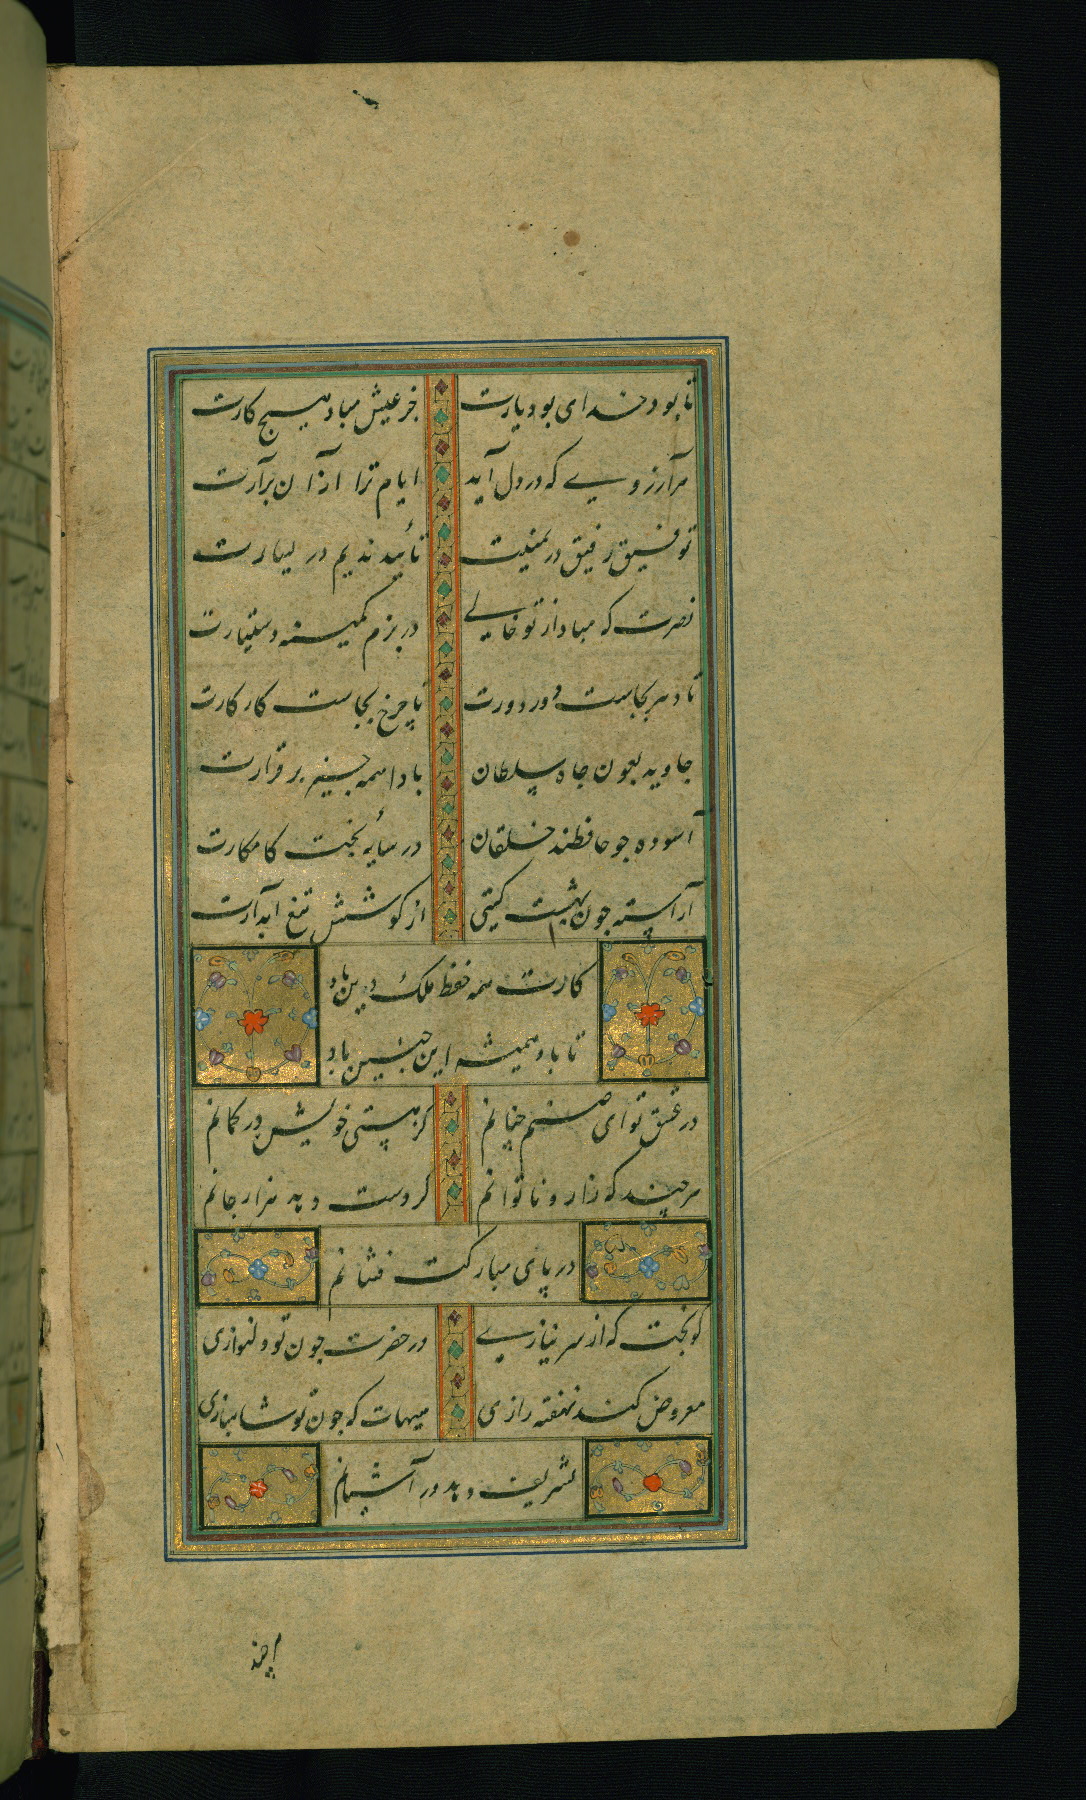 تا بود خدای بود یارت جز عیش مباد هیچ کارت
هر آرزویی که در دل آید ایام ترا از آن برآرت
توفیق رفیق در یمینت تأیید ندیم در یسارت
نصرت که مباد از تو خالی در بزم کمینه دستیارت
تا دهر بجاست دور دورت تا چرخ بجاست کار کارت
جاوید بعون جاه سلطان بادا همه چنین برقرارت
آسوده جو حافظند خلقان در سایهٔ بخت کامکارت
آراسته جون بهشت گیتی از کوشش تیغ آبدارت
کارت همه حفظ ملک و دین باد
تا باد همیشه این جنین باد
در عشق تو ای صنم جنانم کز هستی خویش در کمانم
هر چند که زار و ناتوانم کر دست دهد هزار جانم
در پای مبارکت فشانم
کو بخت که از سر نیازی در حضرت جون تو دلنوازی
معروض کند نهفته رازی هیهات که جون تو شاهبازی
تشریف دهد در آشیانم
هر چند